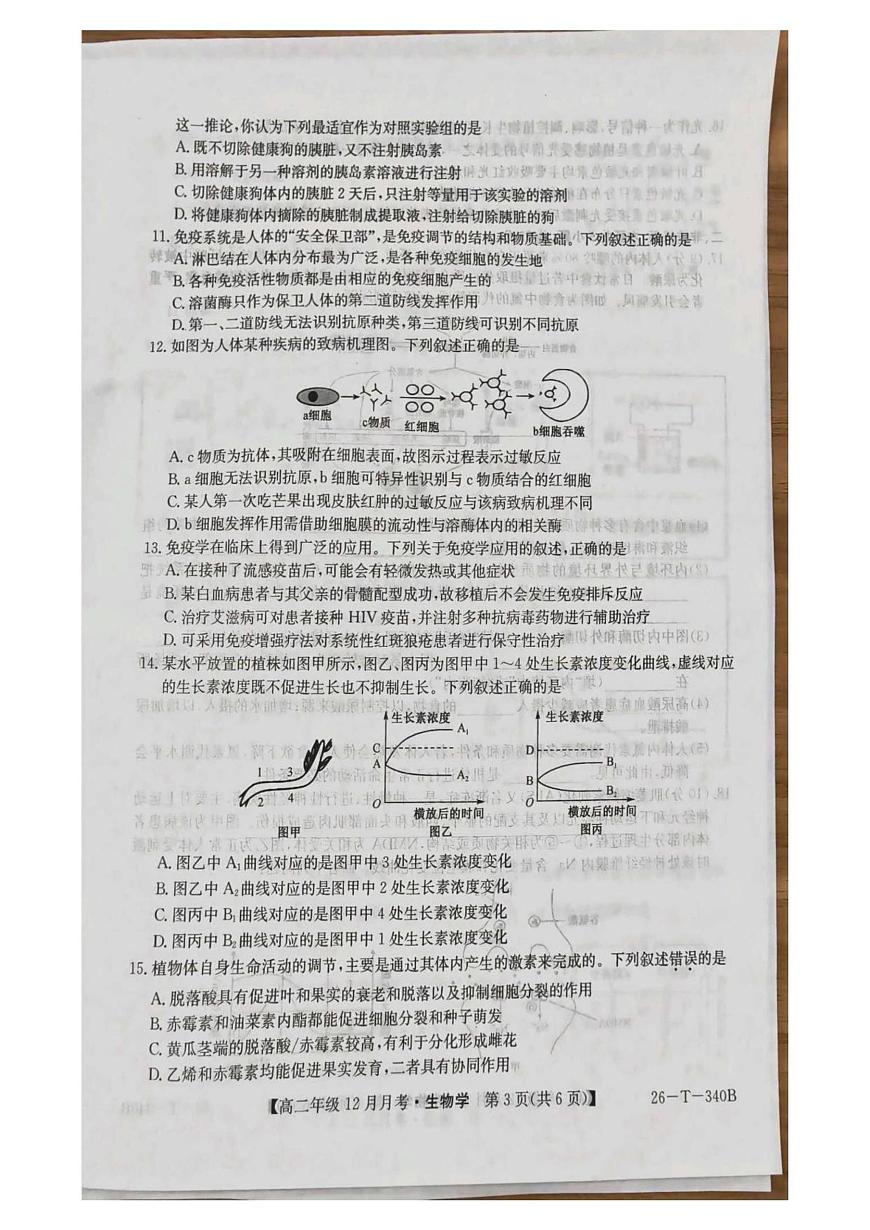 这一推论,你认为下列最适宜作为对照实验组的是
A. 既不切除健康狗的胰脏,又不注射胰岛素
B. 用溶解于另一种溶剂的胰岛素溶液进行注射
C. 切除健康狗体内的胰脏 2 天后,只注射等量用于该实验的溶剂
D. 将健康狗体内摘除的胰脏制成提取液,注射给切除胰脏的狗
11. 免疫系统是人体的“安全保卫部”,是免疫调节的结构和物质基础。下列叙述正确的是
A. 淋巴结在人体内分布最为广泛,是各种免疫细胞的发生地
B. 各种免疫活性物质都是由相应的免疫细胞产生的
C. 溶菌酶只作为保卫人体的第二道防线发挥作用
D. 第一、二道防线无法识别抗原种类,第三道防线可识别不同抗原
12. 如图为人体某种疾病的致病机理图。下列叙述正确的是
a细胞 c物质 红细胞 b细胞吞噬
A. c 物质为抗体,其吸附在细胞表面,故图示过程表示过敏反应
B. a 细胞无法识别抗原,b 细胞可特异性识别与 c 物质结合的红细胞
C. 某人第一次吃芒果出现皮肤红肿的过敏反应与该病致病机理不同
D. b 细胞发挥作用需借助细胞膜的流动性与溶酶体内的相关酶
13. 免疫学在临床上得到广泛的应用。下列关于免疫学应用的叙述,正确的是
A. 在接种了流感疫苗后,可能会有轻微发热或其他症状
B. 某白血病患者与其父亲的骨髓配型成功,故移植后不会发生免疫排斥反应
C. 治疗艾滋病可对患者接种 HIV 疫苗,并注射多种抗病毒药物进行辅助治疗
D. 可采用免疫增强疗法对系统性红斑狼疮患者进行保守性治疗
14. 某水平放置的植株如图甲所示,图乙、图丙为图甲中 1~4 处生长素浓度变化曲线,虚线对应
的生长素浓度既不促进生长也不抑制生长。下列叙述正确的是
1 3 2 4
图甲
生长素浓度 A₁ C A A₂ O 横放后的时间
图乙
生长素浓度 D B₁ B B₂ O 横放后的时间
图丙
A. 图乙中 A₁ 曲线对应的是图甲中 3 处生长素浓度变化
B. 图乙中 A₂ 曲线对应的是图甲中 2 处生长素浓度变化
C. 图丙中 B₁ 曲线对应的是图甲中 4 处生长素浓度变化
D. 图丙中 B₂ 曲线对应的是图甲中 1 处生长素浓度变化
15. 植物体自身生命活动的调节,主要是通过其体内产生的激素来完成的。下列叙述错误的是
A. 脱落酸具有促进叶和果实的衰老和脱落以及抑制细胞分裂的作用
B. 赤霉素和油菜素内酯都能促进细胞分裂和种子萌发
C. 黄瓜茎端的脱落酸/赤霉素较高,有利于分化形成雌花
D. 乙烯和赤霉素均能促进果实发育,二者具有协同作用
【高二年级 12 月月考·生物学 第 3 页(共 6 页)】 26-T-340B